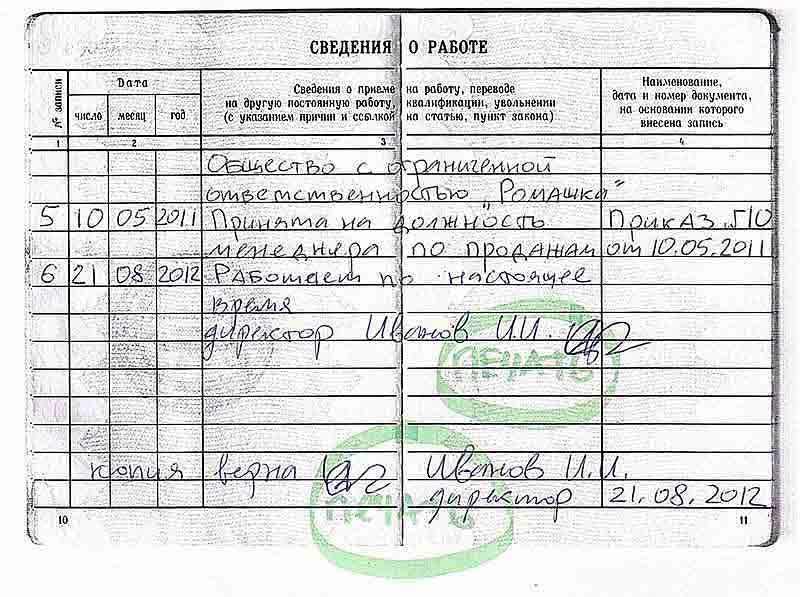 СВЕДЕНИЯ О РАБОТЕ
№ записи
Дата
число месяц год
Сведения о приеме на работу, переводе
на другую постоянную работу, квалификации, увольнении
(с указанием причин и ссылкой на статью, пункт закона)
Наименование,
дата и номер документа,
на основании которого
внесена запись
1 2 3 4
Общество с ограниченной
ответственностью "Ромашка"
5 10 05 2011 Принята на должность Приказ П10
менеджера по продажам от 10.05.2011
6 21 08 2012 Работает по настоящее
время
директор Иванов И.И.
ПЕЧАТЬ
копия верна Иванов И.И.
директор 21.08.2012
ПЕЧАТЬ
10 11